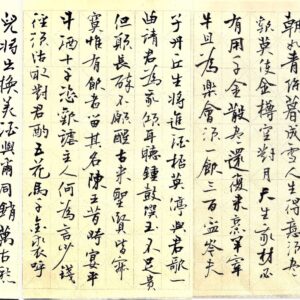 朝如青絲暮成雪人生得意須盡
歡莫使金樽空對月天生我材必
有用千金散盡還復來烹羊宰
牛且為樂會須一飲三百盃岑夫
子丹丘生將進酒杯莫停與君歌一
曲請君為我傾耳聽鐘鼓饌玉不足貴
但願長醉不願醒古來聖賢皆寂
寞惟有飲者留其名陳王昔時宴平
斗酒十千恣歡謔主人何為言少錢
徑須沽取對君酌五花馬千金裘呼
兒將出換美酒與爾同銷萬古愁